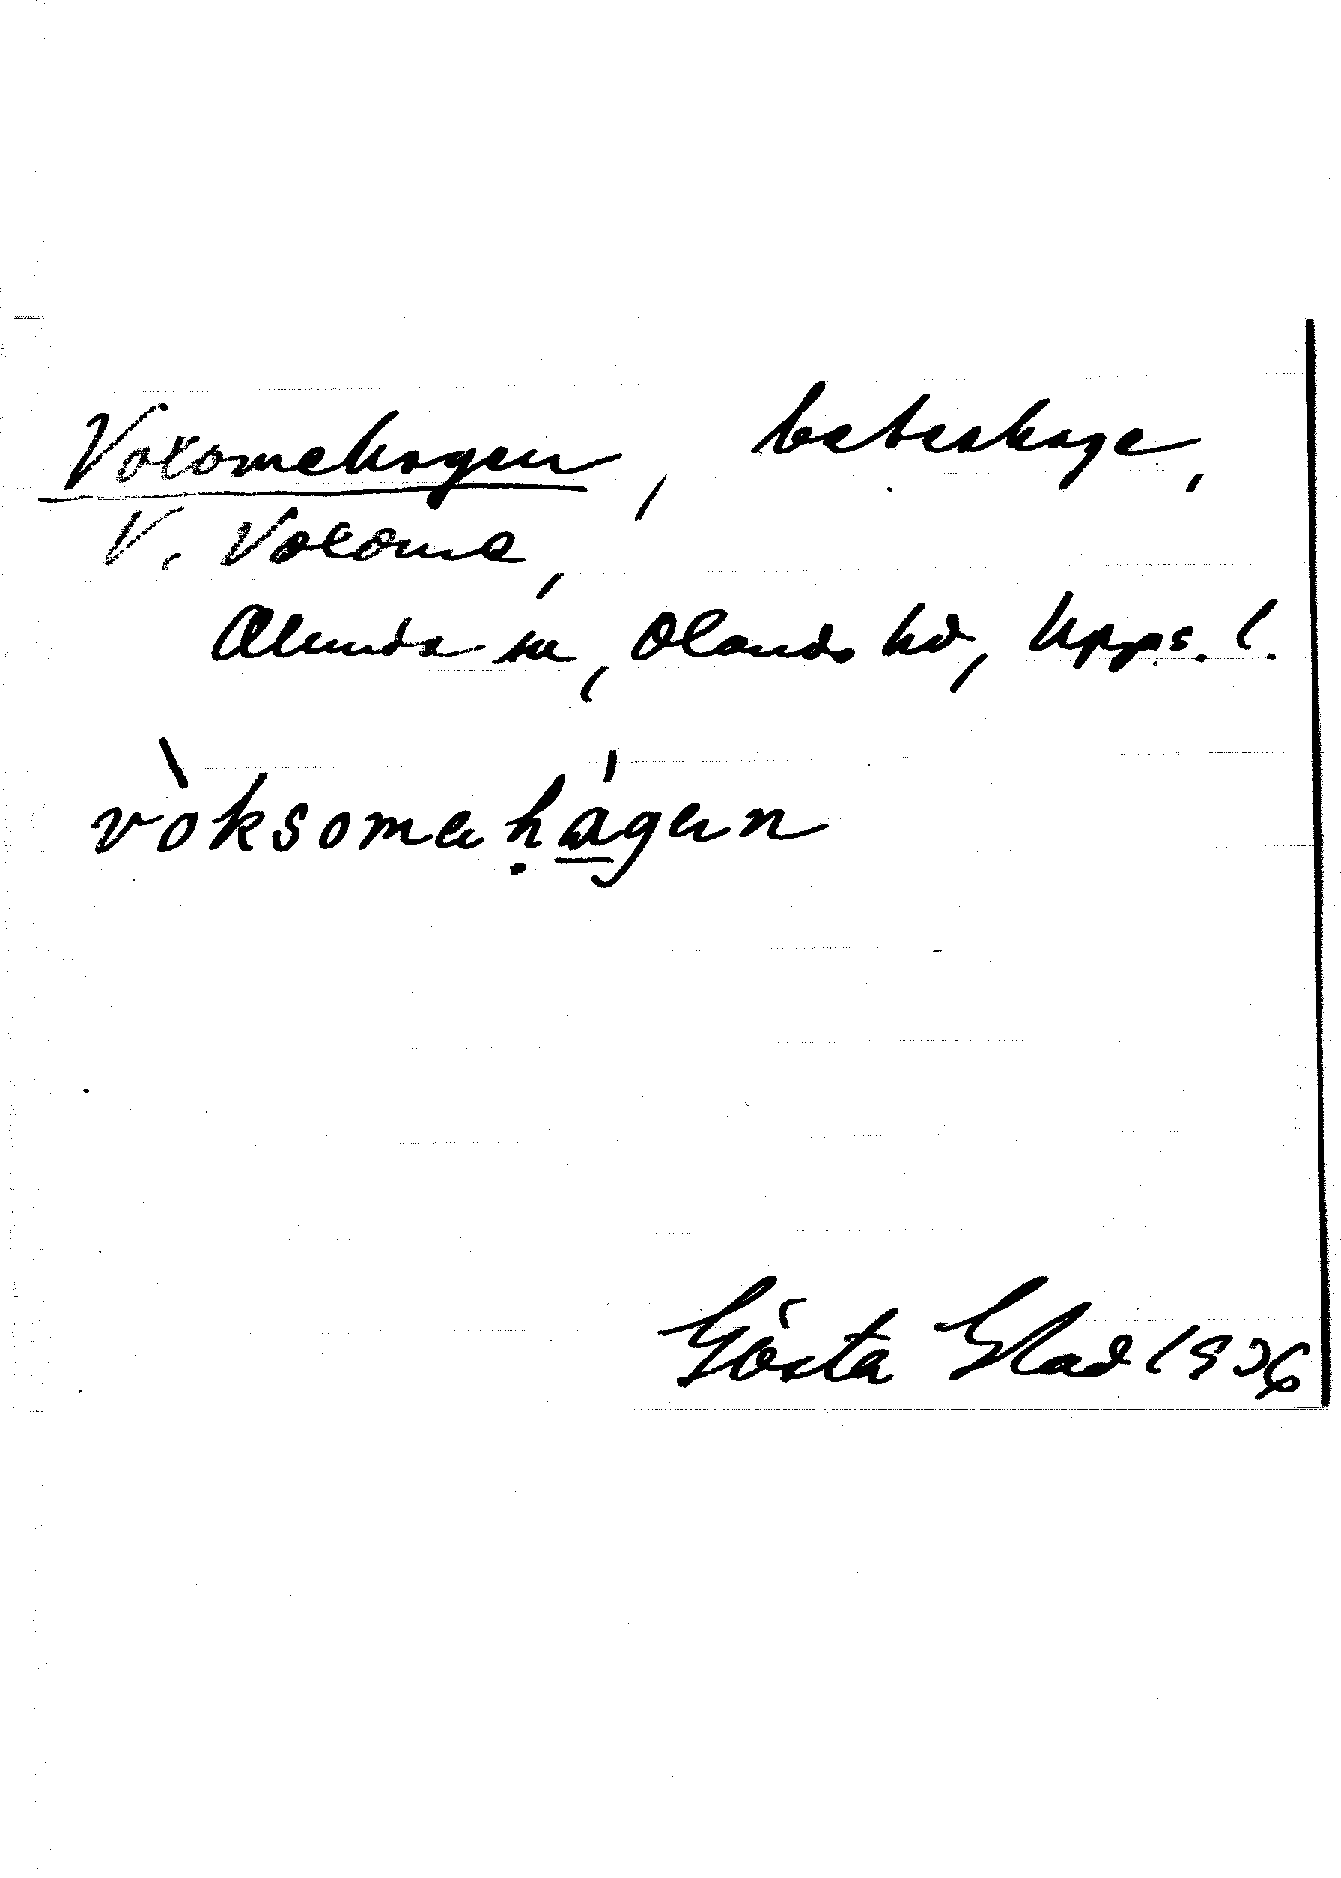 Voxomehagen, beteshage,
V. Voxome,
Alunda sn, Olands hd, Upps. l.
vòksomeḥágen
Gösta Glad 1936